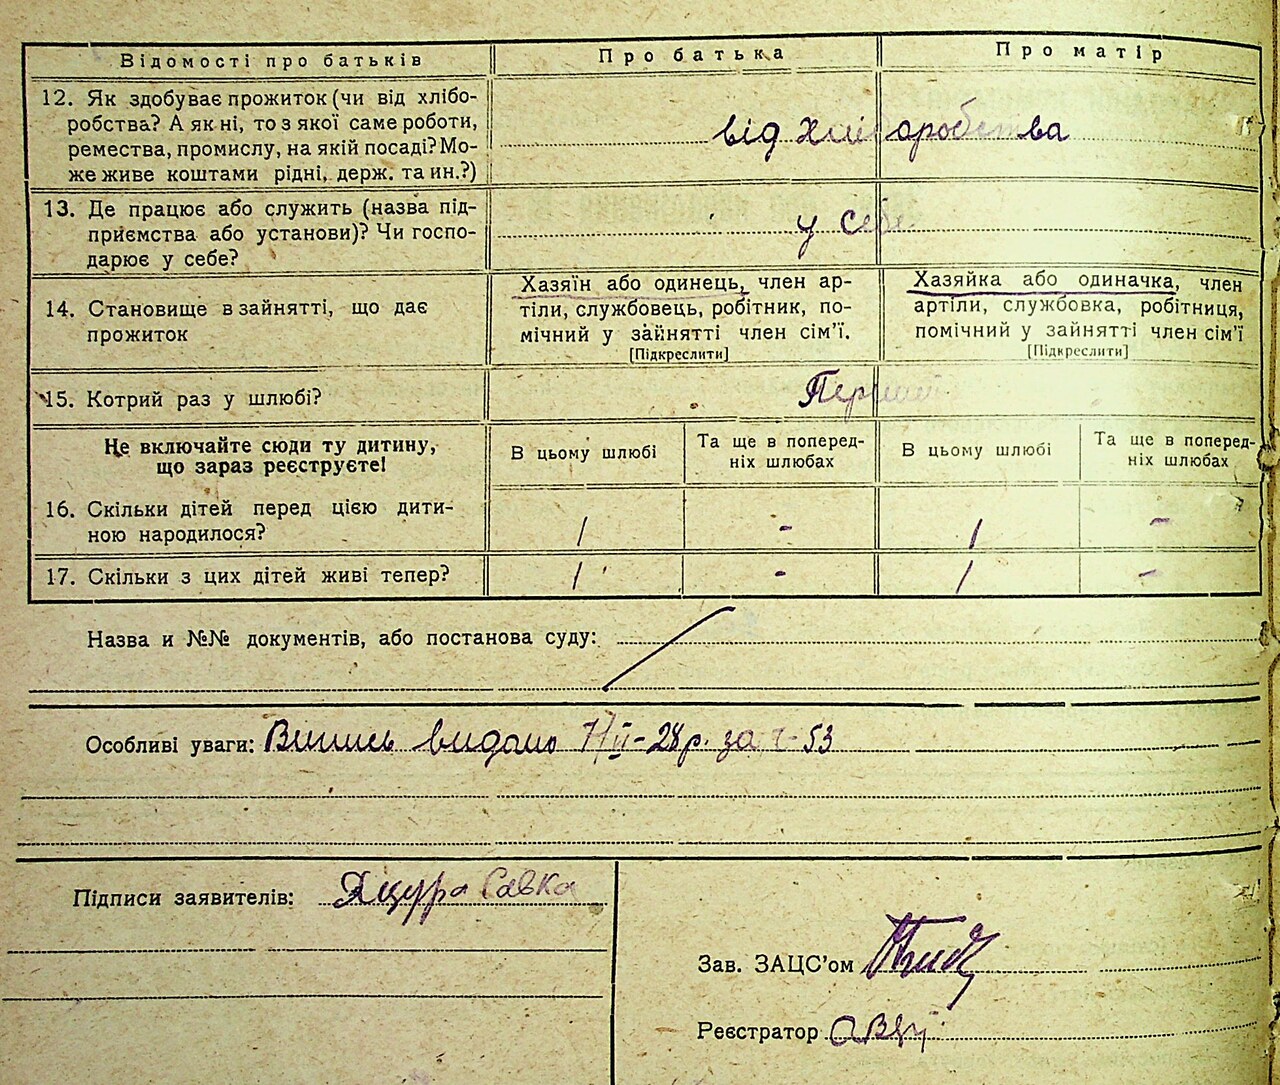 Відомості про батьків
Про батька
Про матір
12. Як здобуває прожиток (чи від хлібо-
робства? А як ні, то з якої саме роботи,
ремества, промислу, на якій посаді? Мо-
же живе коштами рідні, держ. та ин.?)
від хліборобства
13. Де працює або служить (назва під-
приємства або установи)? Чи госпо-
дарює у себе?
у себе
14. Становище в зайнятті, що дає
прожиток
Хазяїн або одинець, член ар-
тіли, службовець, робітник, по-
мічний у зайнятті член сім'ї.
[Підкреслити]
Хазяйка або одиначка, член
артіли, службовка, робітниця,
помічний у зайнятті член сім'ї
[Підкреслити]
15. Котрий раз у шлюбі?
Перший
Не включайте сюди ту дитину,
що зараз реєструєте!
В цьому шлюбі
Та ще в поперед-
ніх шлюбах
В цьому шлюбі
Та ще в поперед-
ніх шлюбах
16. Скільки дітей перед цією дити-
ною народилося?
1 - 1 -
17. Скільки з цих дітей живі тепер?
1 - 1 -
Назва и №№ документів, або постанова суду:
Особливі уваги: Випись видано 7/II-28р. за ч-53
Підписи заявителів: Яцура Савка
Зав. ЗАЦС'ом
Реєстратор